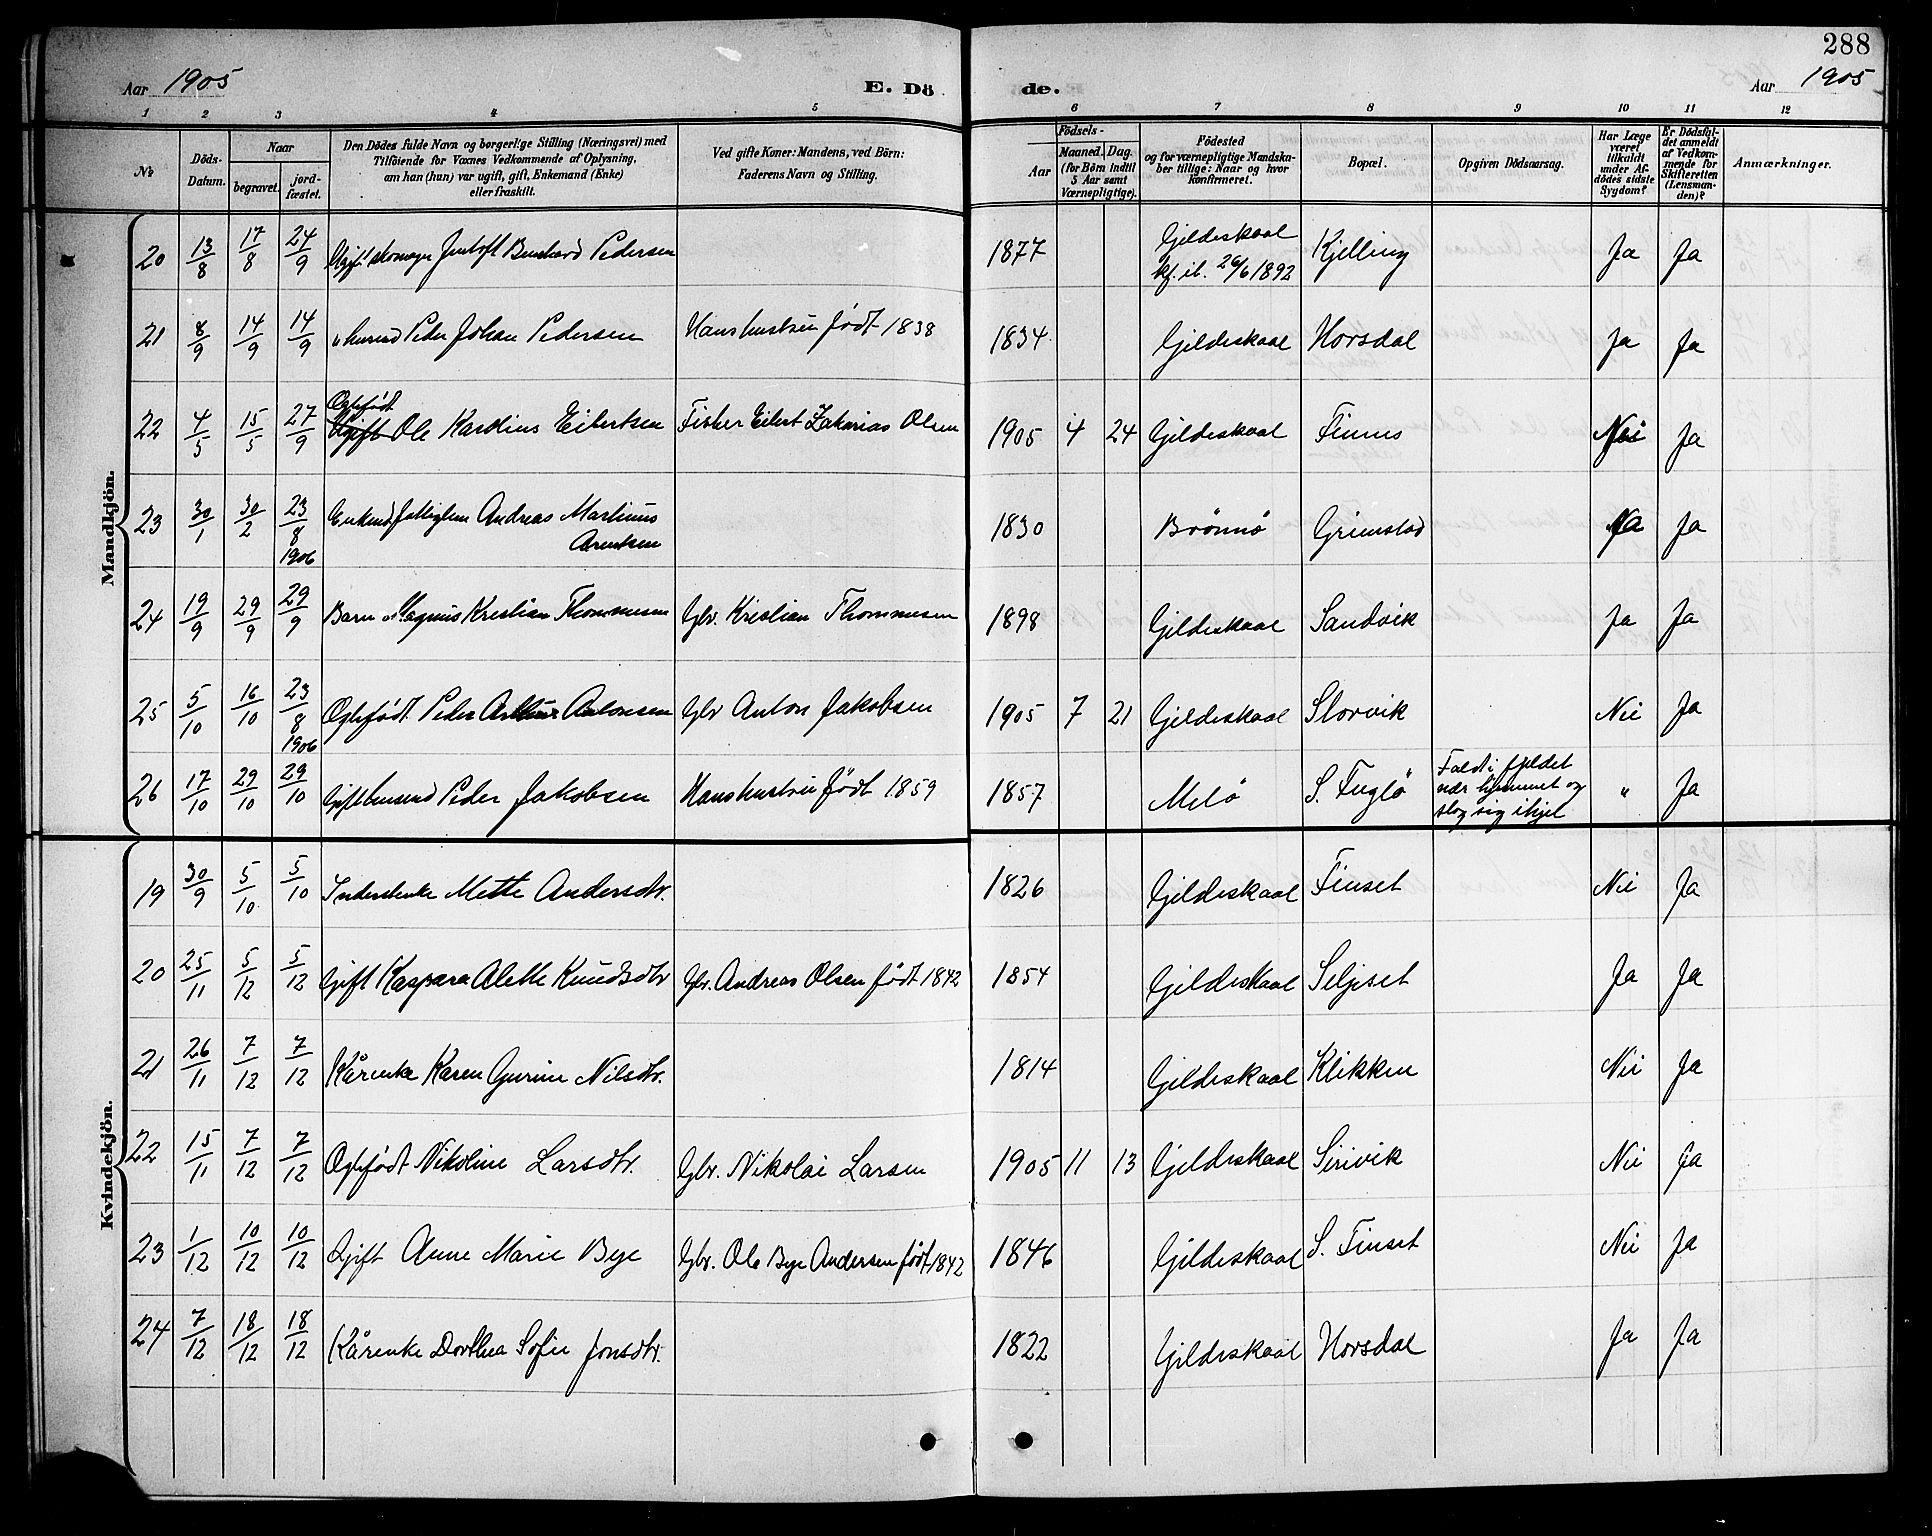 288
Aar 1905 E. Dö de. Aar 1905
1 2 3 4 5 6 7 8 9 10 11 12
No. Döds-Datum. Naar begravet. jordfæstet. Den Dödes fulde Navn og borgerlige Stilling (Næringsvei) med Tilföiende for Voxnes Vedkommende af Oplysning, om han (hun) var ugift, gift, Enkemand (Enke) eller fraskilt. Ved gifte Koner: Mandens, ved Börn: Faderens Navn og Stilling. Födsels- Aar Maaned. Dag. (for Börn indtil 5 Aar samt Værnepligtige). Födested og for værnepligtige Mandskaber tillige: Naar og hvor konfirmeret. Bopæl. Opgiven Dödsaarsag. Har Læge været tilkaldt under Afdödes sidste Sygdom? Er Dödsfaldet anmeldt af Vedkommende for Skifteretten (Lensmanden)? Anmærkninger.
Mandkjön.
20 13/8 17/8 24/9 Ugift Jentoft Bernhard Pedersen 1877 Gildeskaal kf. ib. 26/6 1892 Kjelling Ja Ja
21 8/9 14/9 14/9 Peder Johan Pedersen Hans hustru født 1838 1834 Gildeskaal Horsdal Ja Ja
22 4/5 15/5 27/9 Ogtefødt Ole Karolius Eilertsen Fisker Eilert Zakarias Olsen 1905 4 24 Gildeskaal Finnes Nei Ja
23 30/1 30/2 23/8 1906 Enkemd fattiglem Andreas Martinus Arentsen 1830 Brønnø Grimstad Ja Ja
24 19/9 29/9 29/9 Barn Magnus Kristian Thommesen Gbr. Kristian Thommesen 1898 Gildeskaal Sandvik Ja Ja
25 5/10 16/10 23/8 1906 Egtefødt Peder Arthur Antonsen Gbr Anton Jakobsen 1905 7 21 Gildeskaal Storvik Nei Ja
26 17/10 29/10 29/10 Gift Peder Jakobsen Hans hustru født 1859 1857 Melø S. Fuglø Faldt i fjeldet nær hjemmet og slog sig ihjel " Ja
Kvindekjön.
19 30/9 5/10 5/10 Inderstenke Mette Andersdtr. 1826 Gildeskaal Finset Nei Ja
20 25/11 5/12 5/12 Gift Kaspara Alette Knudsdtr Gbr. Andreas Olsen født 1842 1854 Gildeskaal Seljeset Ja Ja
21 26/11 7/12 7/12 Kårenke Karen Gurine Nilsdtr. 1814 Gildeskaal Klikken Nei Ja
22 15/11 7/12 7/12 Egtefødt Nikoline Larsdtr. Gbr. Nikolai Larsen 1905 11 13 Gildeskaal Sirivik Nei Ja
23 1/12 10/12 10/12 Gift Anne Marie Bye Gbr. Ole Bye Andersen født 1842 1846 Gildeskaal S. Finset Nei Ja
24 7/12 18/12 18/12 Kårenke Dorthea Sofie Jonsdtr. 1822 Gildeskaal Horsdal Ja Ja